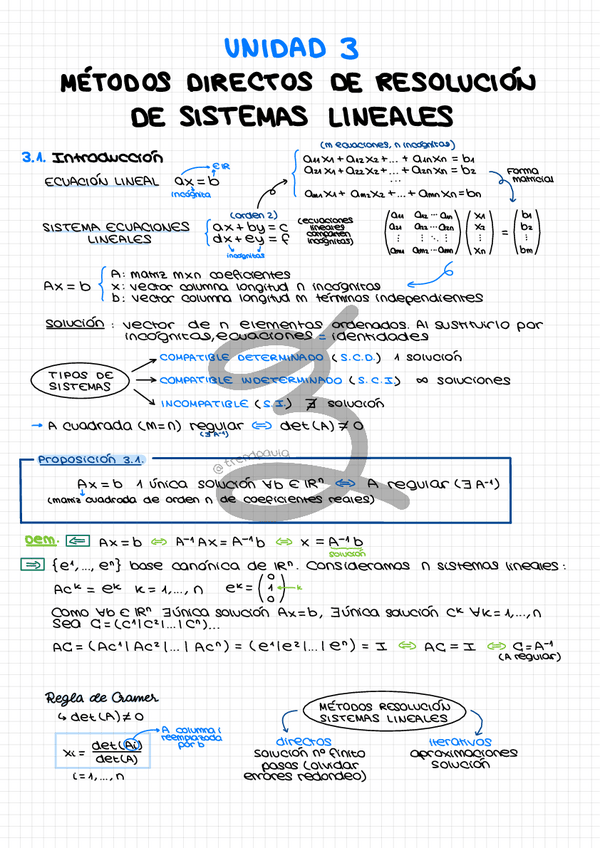 UNIDAD 3
MÉTODOS DIRECTOS DE RESOLUCIÓN
DE SISTEMAS LINEALES
3.1. Introducción
ECUACIÓN LINEAL ax = b
∈ℝ
incógnita
(m ecuaciones, n incógnitas)
a₁₁x₁ + a₁₂x₂ + ... + a₁ₙxₙ = b₁
a₂₁x₁ + a₂₂x₂ + ... + a₂ₙxₙ = b₂
...
aₘ₁x₁ + aₘ₂x₂ + ... + aₘₙxₙ = bₙ
Forma
matricial
SISTEMA ECUACIONES
LINEALES
(orden 2)
ax + by = c
dx + ey = f
incógnitas
(ecuaciones
lineales
comparten
incógnitas)
(a₁₁ a₁₂ ... a₁ₙ) (x₁) (b₁)
(a₂₁ a₂₂ ... a₂ₙ) (x₂) = (b₂)
(⋮ ⋮ ⋱ ⋮) (⋮) (⋮)
(aₘ₁ aₘ₂ ... aₘₙ) (xₙ) (bₘ)
Ax = b
A: matriz mxn coeficientes
x: vector columna longitud n incógnitas
b: vector columna longitud m términos independientes
solución : vector de n elementos ordenados. Al sustituirlo por
incógnitas, ecuaciones = identidades
TIPOS DE
SISTEMAS
→ COMPATIBLE DETERMINADO (S.C.D.) 1 solución
→ COMPATIBLE INDETERMINADO (S.C.I) ∞ soluciones
→ INCOMPATIBLE (S.I.) ∄ solución
→ A cuadrada (m=n) regular ⇔ det(A) ≠ 0
(∃ A⁻¹)
@trendaula
Proposición 3.1.
Ax = b 1 única solución ∀b ∈ ℝⁿ ⇔ A regular (∃ A⁻¹)
(matriz cuadrada de orden n de coeficientes reales)
Dem. ⇐ Ax = b ⇔ A⁻¹Ax = A⁻¹b ⇔ x = A⁻¹b
solución
⇒ {e¹,..., eⁿ} base canónica de ℝⁿ. Consideramos n sistemas lineales:
Acᵏ = eᵏ k = 1,..., n eᵏ = (0 1 0) ← k
Como ∀b ∈ ℝⁿ ∃única solución Ax = b, ∃única solución cᵏ ∀k = 1,..., n
Sea C = (c¹|c²|...|cⁿ)...
AC = (Ac¹|Ac²|...|Acⁿ) = (e¹|e²|...|eⁿ) = I ⇔ AC = I ⇔ C = A⁻¹
(A regular)
Regla de Cramer
↳ det(A) ≠ 0
xᵢ = det(Aᵢ) / det(A)
i = 1,..., n
A columna i
reemplazada
por b
MÉTODOS RESOLUCIÓN
SISTEMAS LINEALES
directos
solución nº finito
pasos (olvidar
errores redondeo)
iterativos
aproximaciones
solución